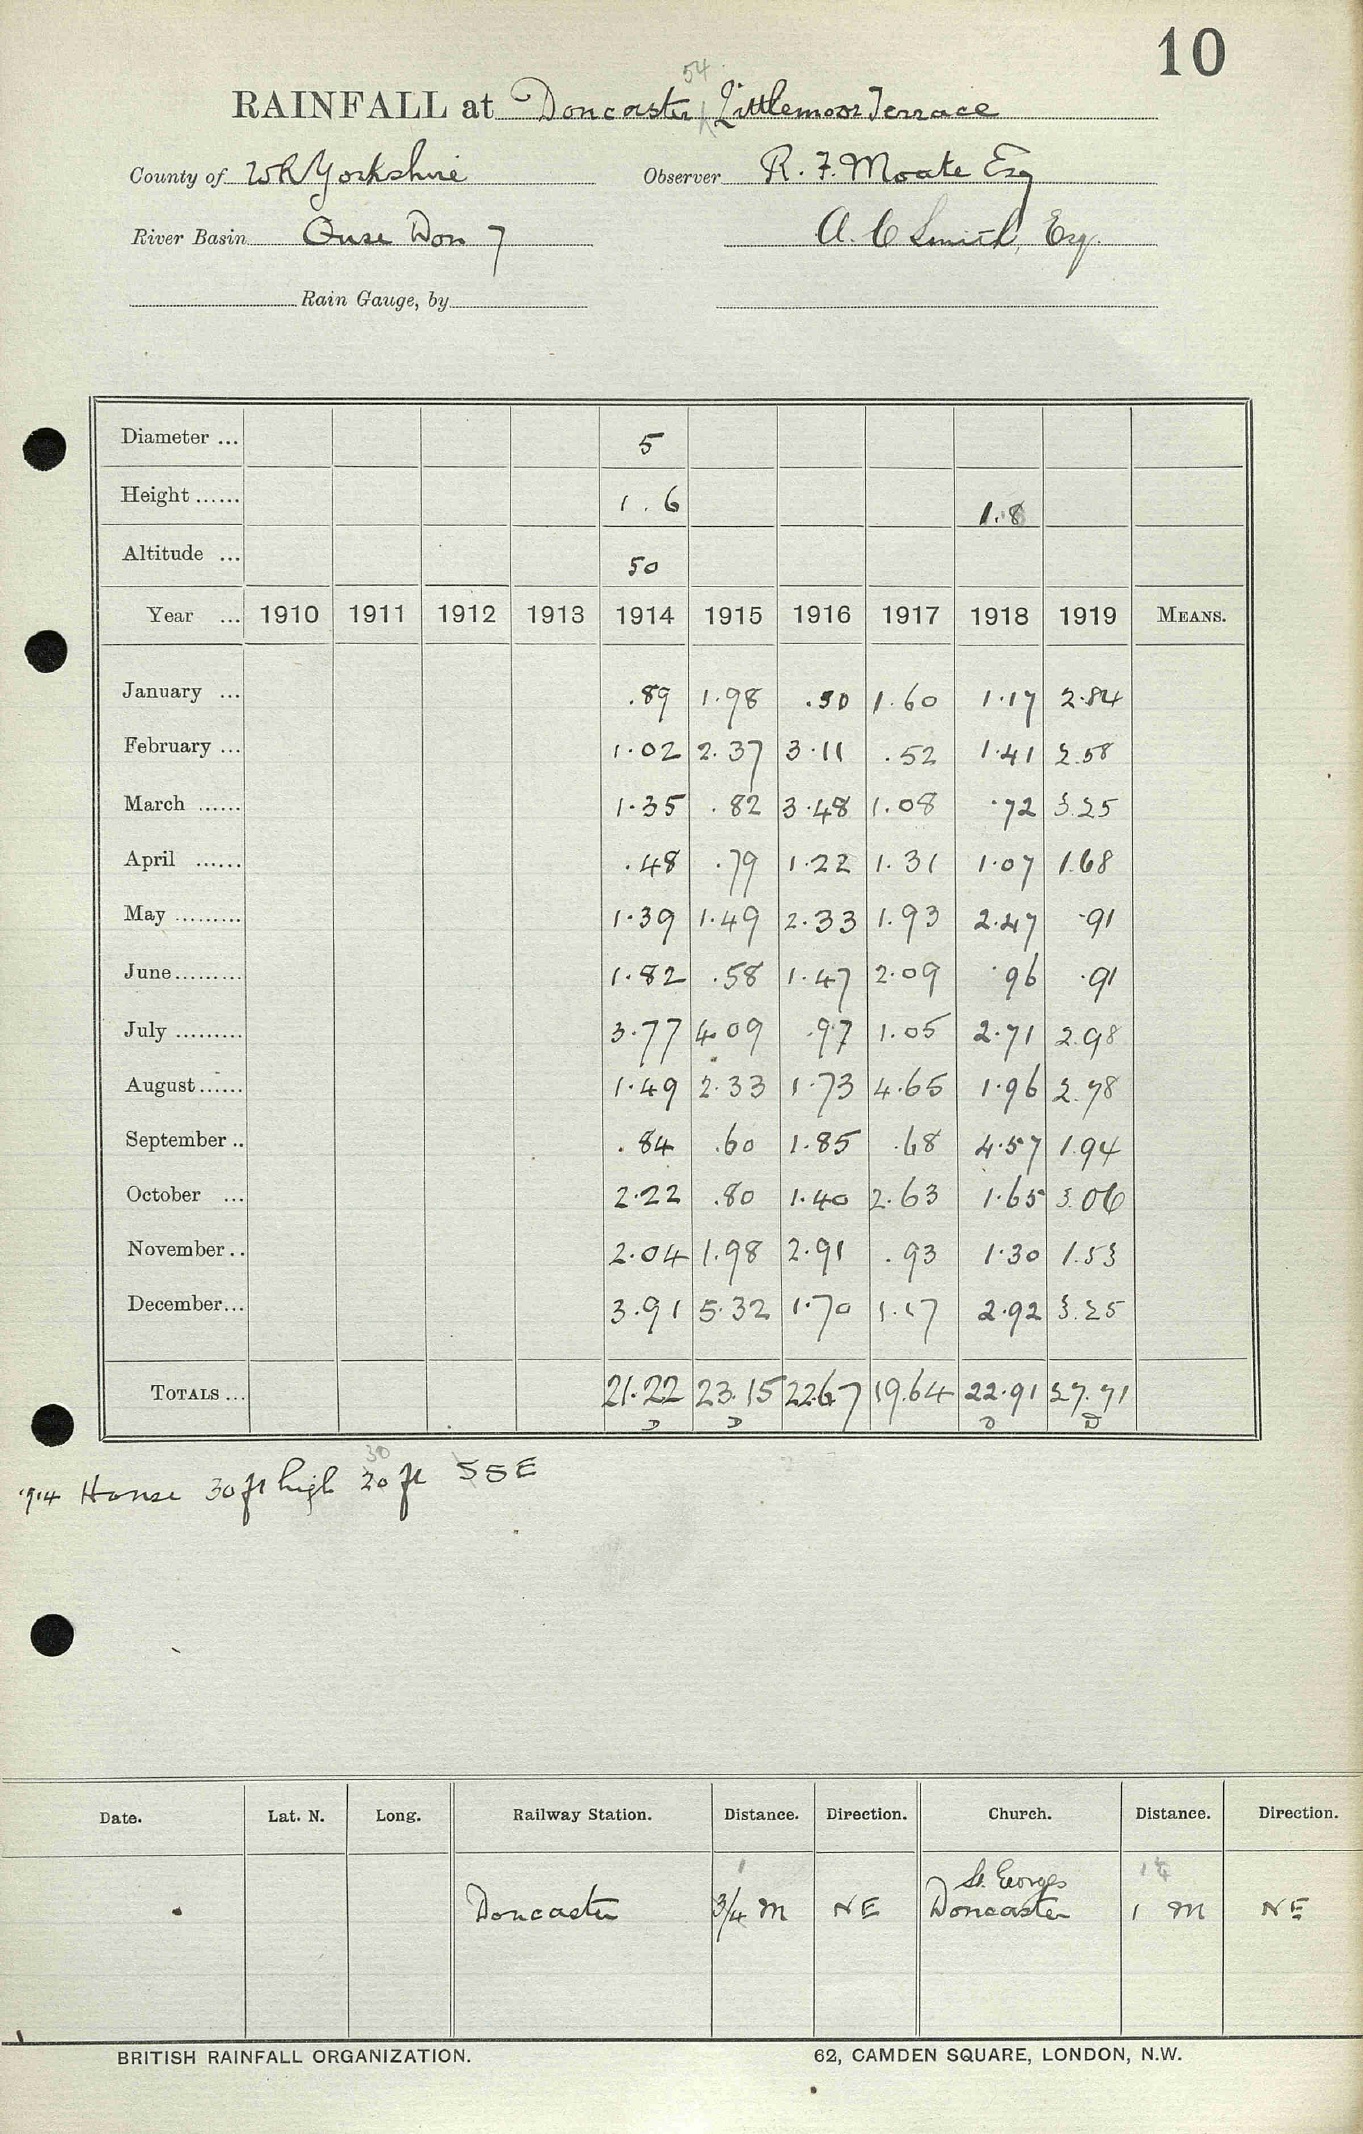 10
54
RAINFALL at Doncaster Littlemoor Terrace
County of WR Yorkshire Observer R. F. Moate Esq
River Basin Ouse Don 7 A. C Smith, Esq.
Rain Gauge, by
Diameter ... 5
Height ...... 1.6 1.8
Altitude ... 50
Year ... 1910 1911 1912 1913 1914 1915 1916 1917 1918 1919 MEANS.
January ... .89 1.98 .50 1.60 1.17 2.84
February ... 1.02 2.37 3.11 .52 1.41 2.58
March ...... 1.35 .82 3.48 1.08 .72 3.25
April ...... .48 .79 1.22 1.31 1.07 1.68
May ......... 1.39 1.49 2.33 1.93 2.47 .91
June......... 1.82 .58 1.47 2.09 .96 .91
July ......... 3.77 4.09 .97 1.05 2.71 2.98
August...... 1.49 2.33 1.73 4.65 1.96 2.78
September .. .84 .60 1.85 .68 4.57 1.94
October ... 2.22 .80 1.40 2.63 1.65 3.06
November .. 2.04 1.98 2.91 .93 1.30 1.53
December... 3.91 5.32 1.70 1.17 2.92 3.25
TOTALS ... 21.22 23.15 22.67 19.64 22.91 27.71
D D D D
30
1914 House 30 ft high 20 ft SSE
Date. Lat. N. Long. Railway Station. Distance. Direction. Church. Distance. Direction.
1 St. Georges 1¼
Doncaster 3/4 M NE Doncaster 1 M NE
BRITISH RAINFALL ORGANIZATION. 62, CAMDEN SQUARE, LONDON, N.W.